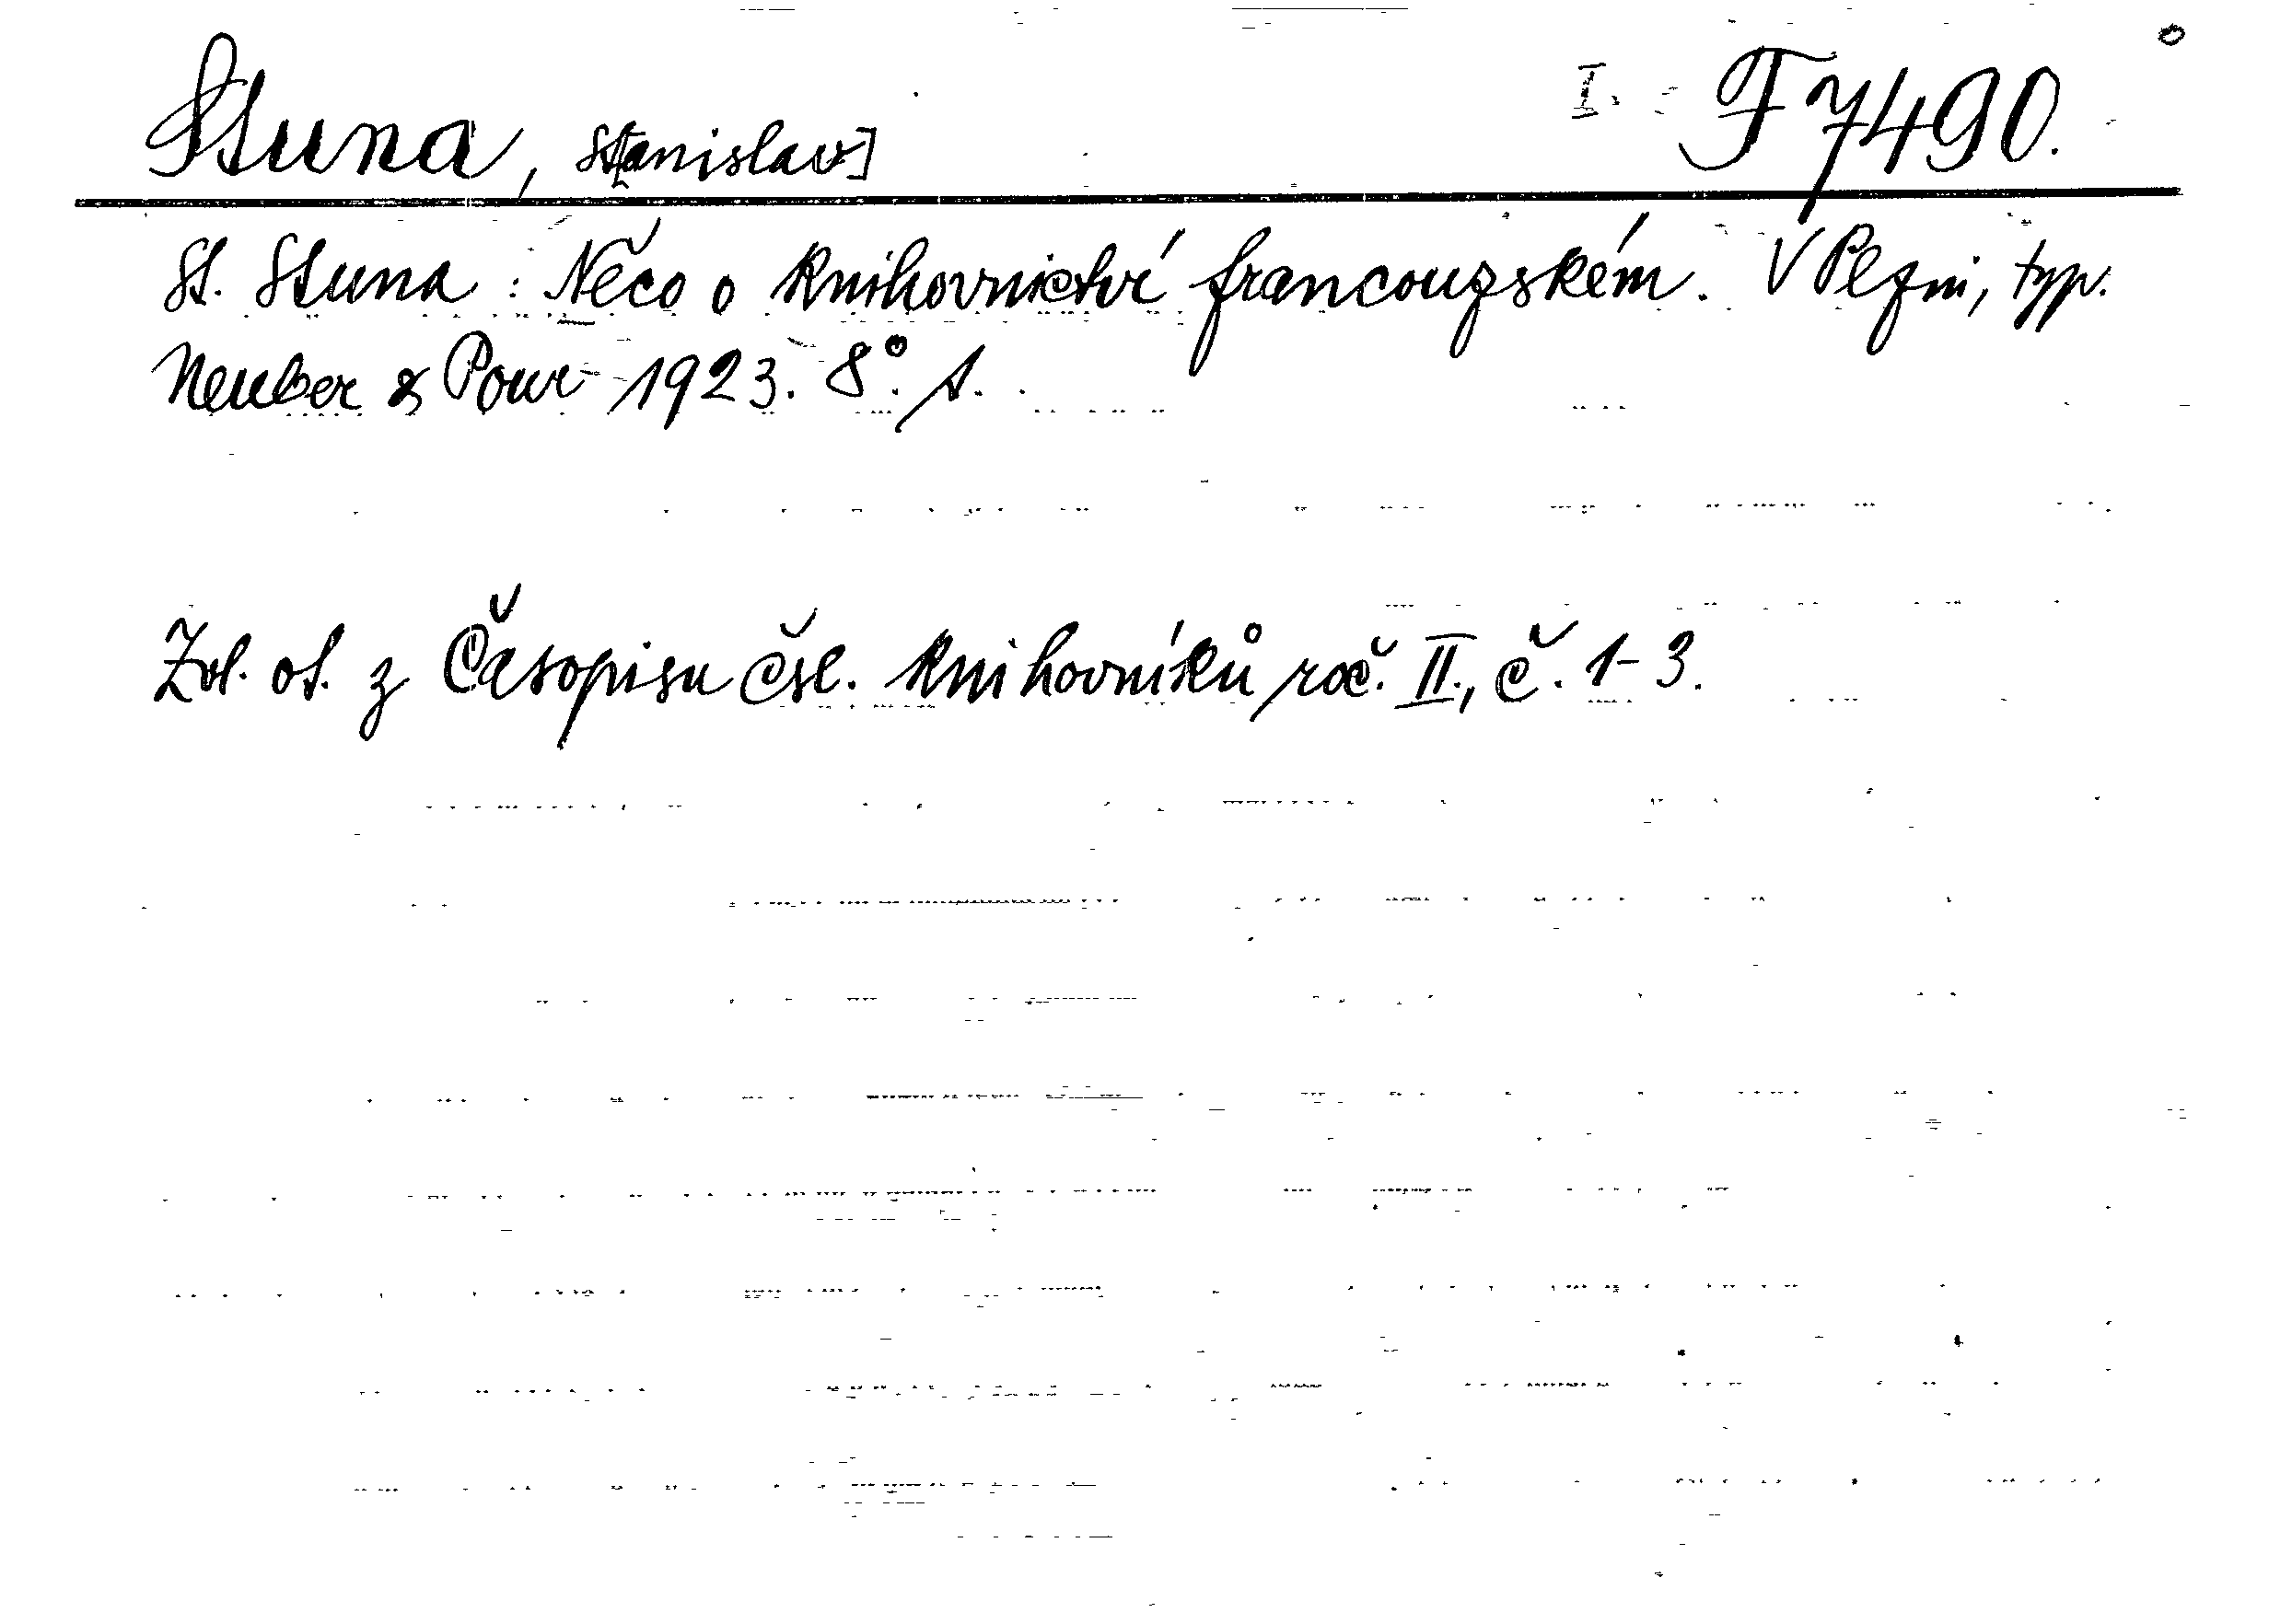 Stuna, St[anislav] I. F 7490.
St. Stuna : Něco o knihovnictví francouzském. V Plzni, typ.
Neuber & Pour 1923. 8°. s.
Zvl. ot. z Časopisu čsl. knihovníků roč. II., č. 1-3.